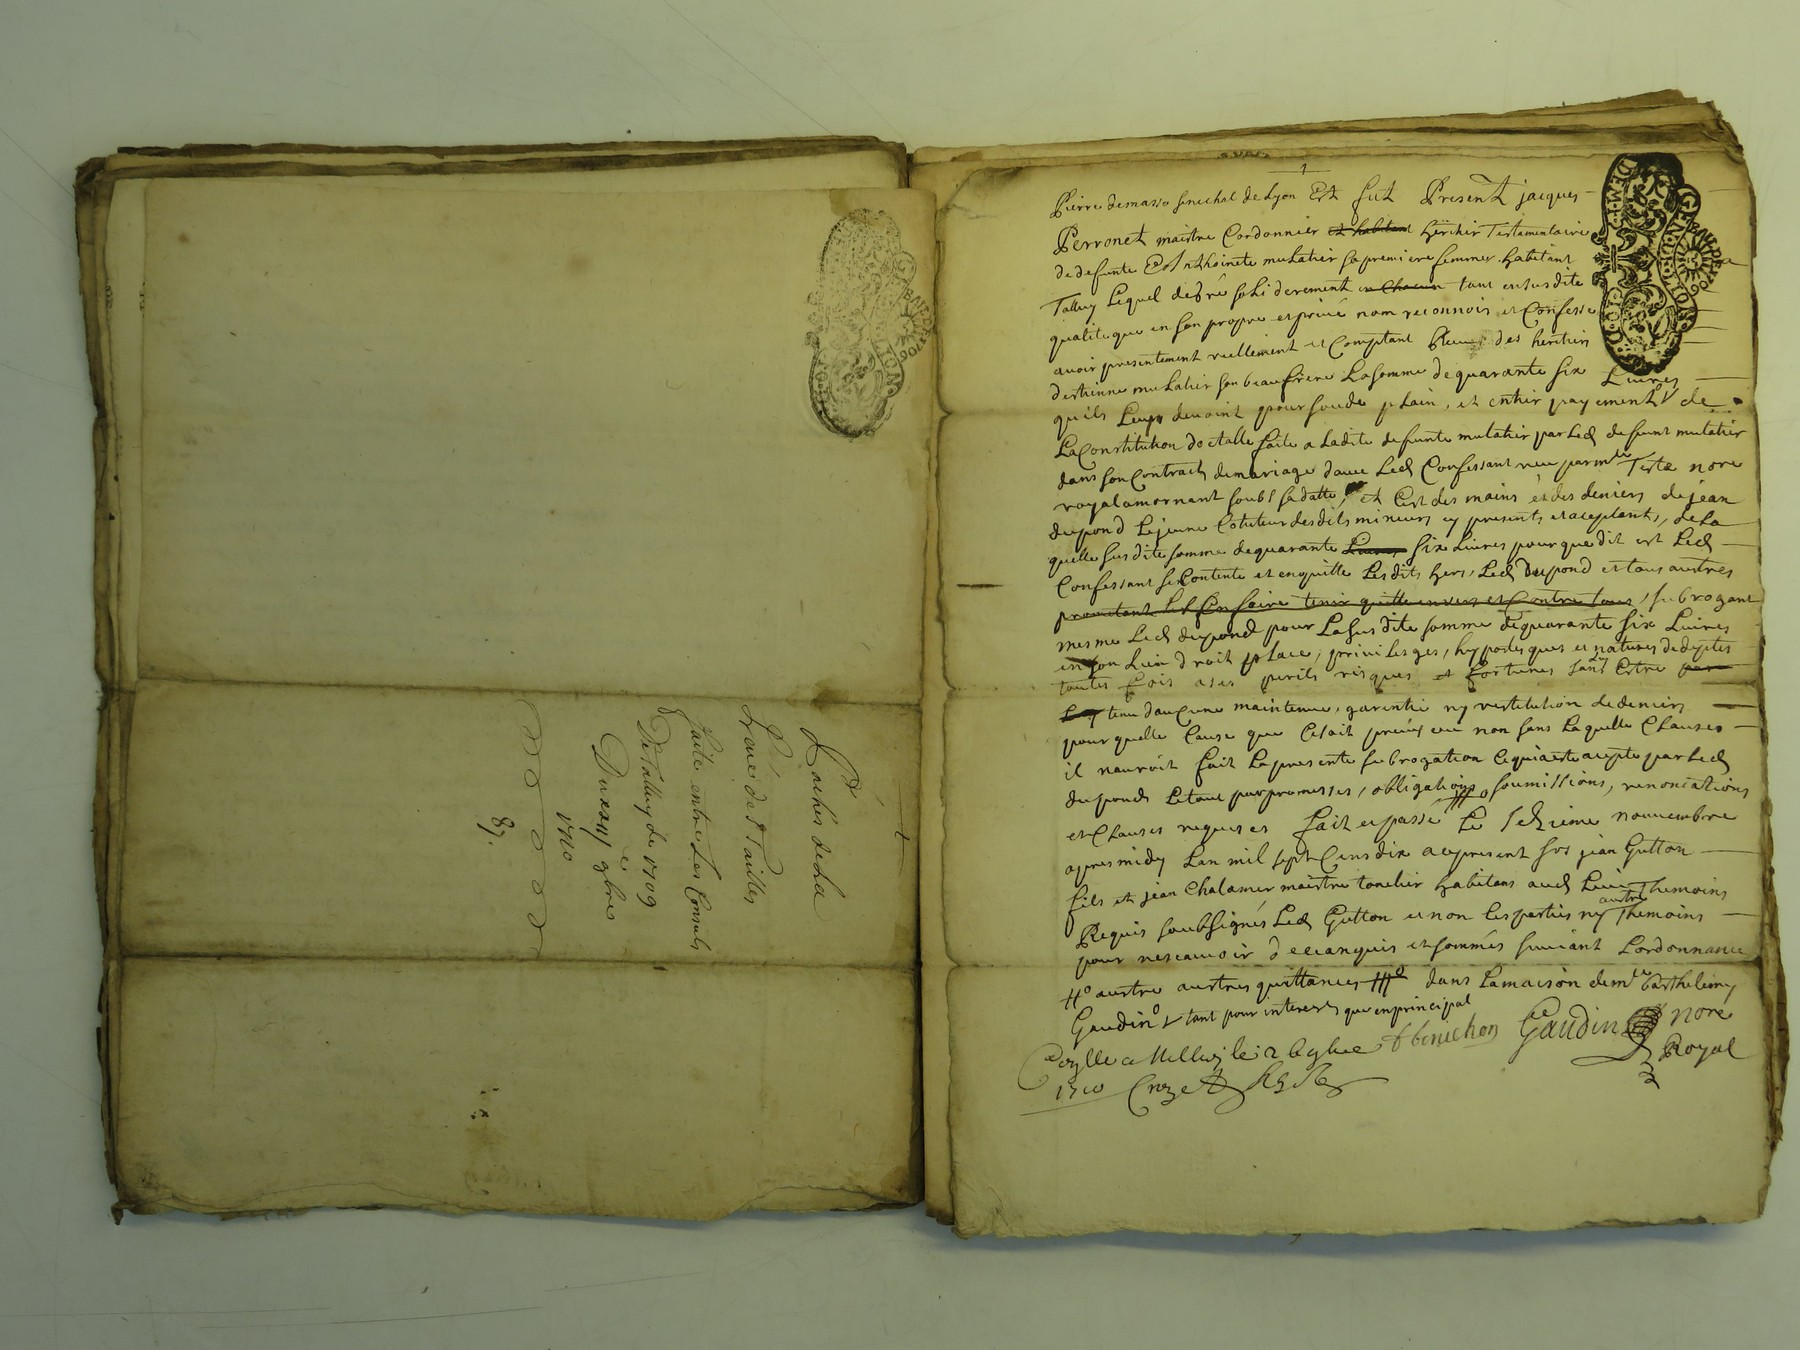 Lachés dela
Levée des Tailles
faite entre Les Consuls
De Talluy de 1709
Du xxııȷ xbre
1710
87.
Pierre demasso senechal de Lyon Et fut Present jacques
Perronet maistre Cordonnier et habitant heritier Testamentaire
de defunte Anthoinete mulatier sa premiere femme habitant
Talluy Lequel de gré soliderement tant en susdite
qualite que en son propre et privé nom reconnois et Confesse
avoir presentement reellement et Comptant Receu des heritiers
destienne mulatier son beaufrere La somme de quarante six Livres
quils Luy devoint pour soude plain, et entier payement de
La Constitution doctalle faite a Ladite defunte mulatier par Led defunt mulatier
dans son Contract de mariage davec Led Confessant receu par mre Teste nore
royal a mornant soubs sa datte, et Cest des mains et des deniers de jean
dupond Lejeune Cotuteur desdits mineurs cy present et aceptant, de La
quelle susdite somme de quarante Livres six Livres pour que dit est Led
Confessant se Contente et en quitte Lesdits hers, Led Dupond et tous autres
promettant Les En faire tenir quitte envers et Contre tous, subrogant
mesme Led dupond pour La susdite somme de quarante six Livres
en son Lieu droit place, privileges, hypoteques et natures de deptes
toutes fois a ses perils risques et fortunes sans Estre par
Luy tenu daucune maintenue, garentie ny restitution de deniers
pour quelle Cause que Ce soit preveu ou non sans Laquelle Clauses
il nauroit fait La presente subrogation Ce qui a esté acepte par Led
dupond Le tout par promesses, obligations soumissions, renonciations
et Clauses requises fait et passé Le seizieme nouvembre
apres midy Lan mil sept Cens dix a ce present sr jean Gutton
fils et jean Chalamer maistre tonelier habitans aud Lieu Themoins
Requis soubsignés Led Gutton et non Les parties ny autre Themoins
pour ne scavoir de ce enquis et sommés suivant Lordonnance
autre autres quittances dans La maison de mre barthelemy
Gaudin tant pour interest que en principal
Gaudin nore
Royal
1710 Crozet